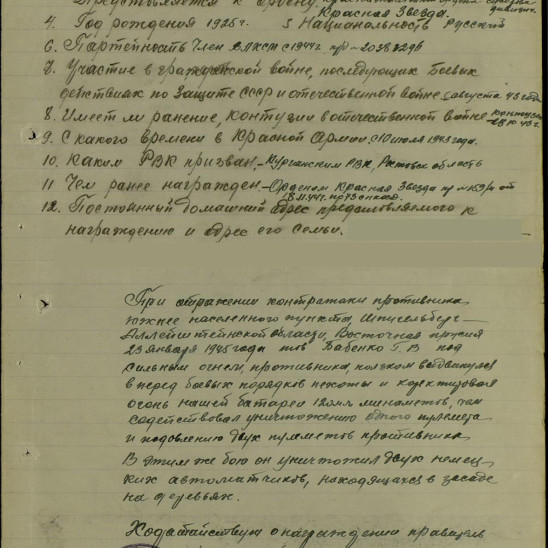 Представляется к ордену
Красная Звезда.
4. Год рождения 1925 г. 5 Национальность Русский
6. Партейность Член ВЛКСМ с 1944 г.
7. Участие в гражданской войне, последующих боевых
действиях по защите СССР и отечественной войне с августа 43 года
8. Имеет ли ранение, контузии в отечественной войне
9. С какого времени в Красной Армии, с 10 июля 1943 года.
10. Каким РВК призван, РВК, Ростовск область
11 Чем ранее награжден – Орденом Красная Звезда
12. Постоянный домашний адрес представляемого к
награждению и адрес его семьи.
При отражении контратаки противника
южнее населенного пункта
Алленштейнской области, Восточная Пруссия
23 января 1945 года тов Бабенко Г. В под
сильным огнем противника, ползком выдвинулся
вперед боевых порядков пехоты и коректировал
огонь нашей батареи минометов, чем
содействовал уничтожению одного пулемета
и подовлению двух пулеметов противника
В этим же бою он уничтожил двух немец
ких автоматчиков, находящихся в засаде
на деревьях.
Ходатайствую о награждении правитель